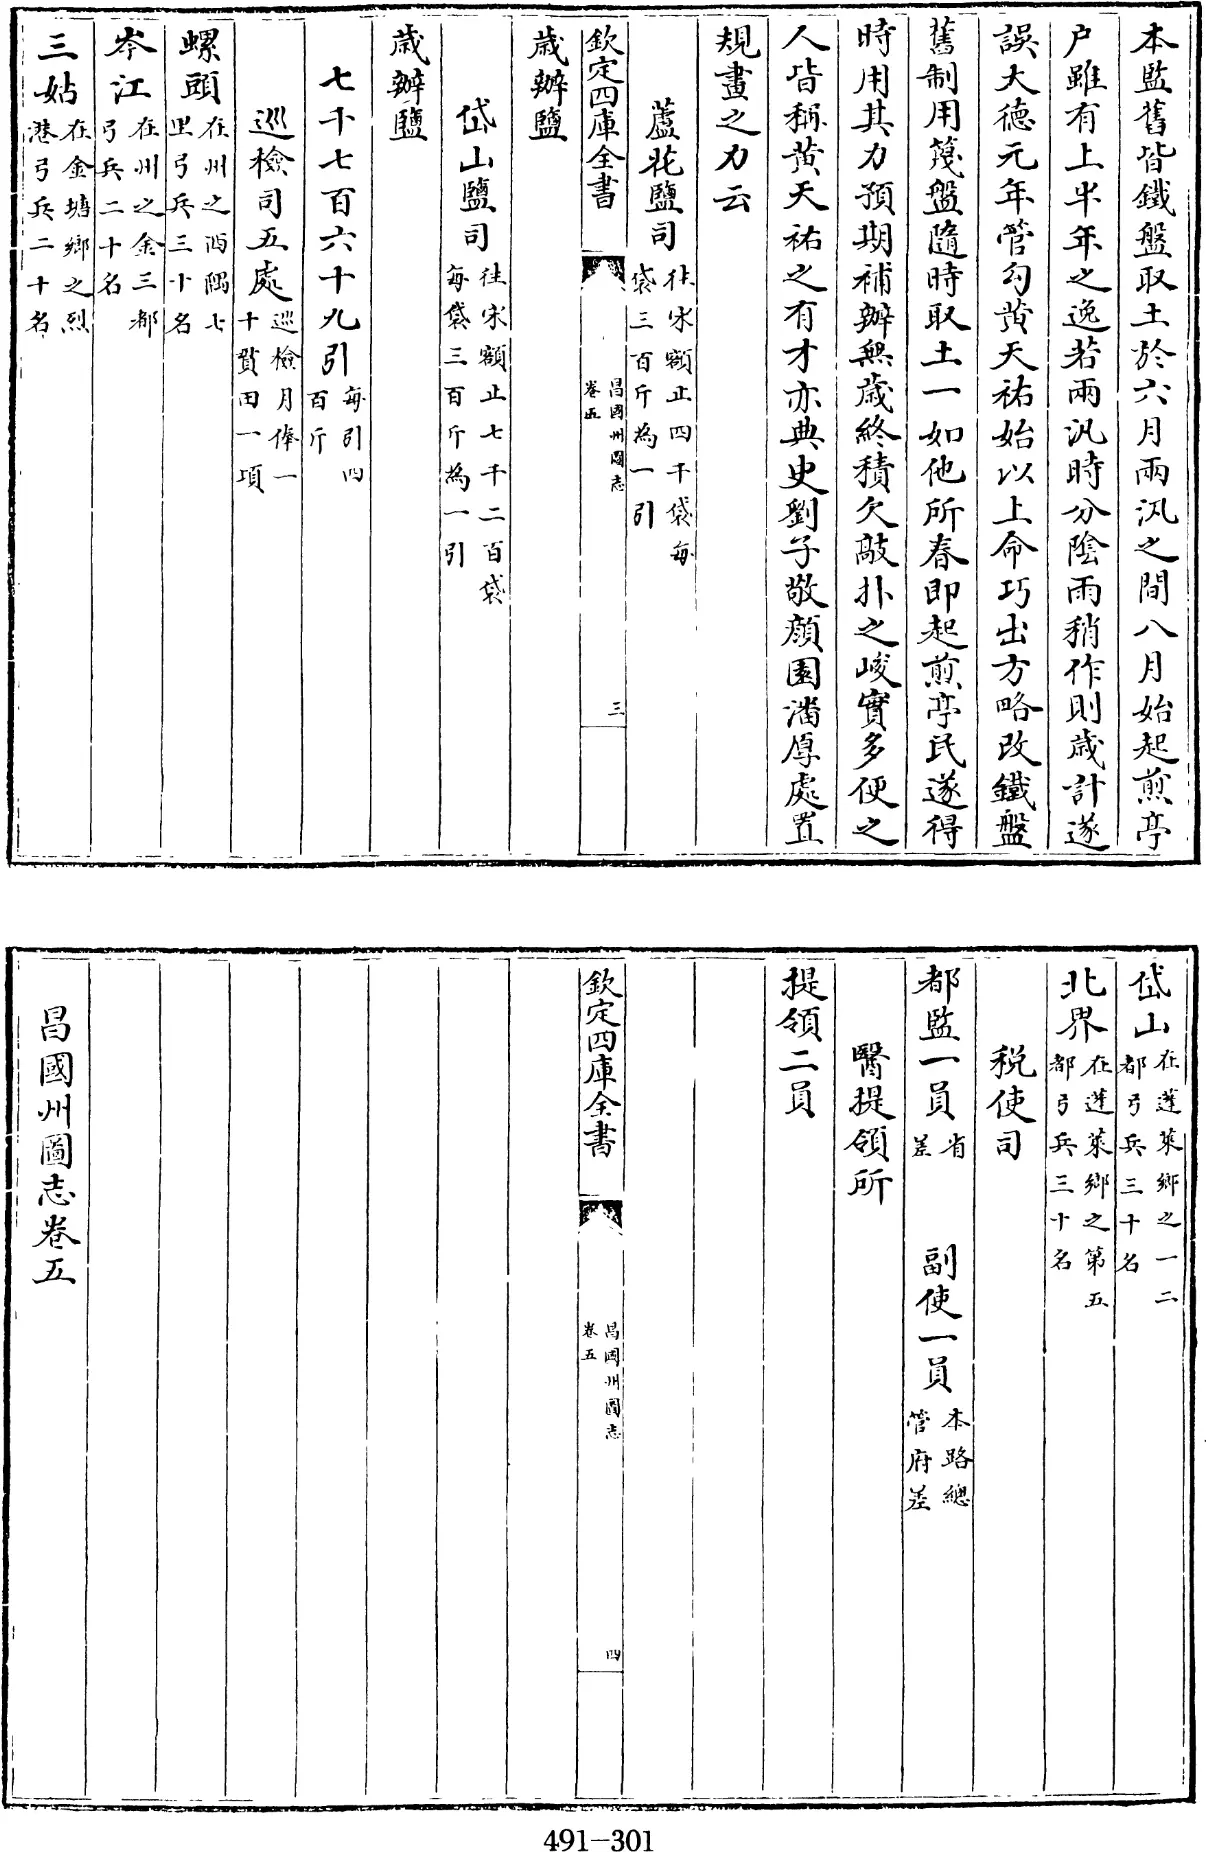 本監舊皆鐵盤取土於六月兩汛之間八月始起煎亭
户雖有上半年之逸若兩汛時分陰雨稍作則歲計遂
誤大德元年管勾黄天祐始以上命巧出方略改鐵盤
舊制用篾盤隨時取土一如他所春即起煎亭民遂得
時用其力預期補辦無歲終積欠敲扑之峻實多便之
人皆稱黄天祐之有才亦典史劉子敬顔園潘厚處置
規畫之力云
蘆花鹽司
往宋額止四千袋每
袋三百斤為一引
欽定四庫全書
昌國州圖志
卷五
三
歲辦鹽
岱山鹽司
往宋額止七千二百袋
每袋三百斤為一引
歲辦鹽
七千七百六十九引
每引四
百斤
巡檢司五處
巡檢月俸一
十貫田一項
螺頭
在州之西隅七
里弓兵三十名
岑江
在州之金三都
弓兵二十名
三姑
在金塘鄉之烈
港弓兵二十名
岱山
在蓬萊鄉之一二
都弓兵三十名
北界
在蓬萊鄉之第五
都弓兵三十名
税使司
都監一員
省
差
副使一員
本路總
管府差
醫提領所
提領二員
欽定四庫全書
昌國州圖志
卷五
四
昌國州圖志卷五
491-301